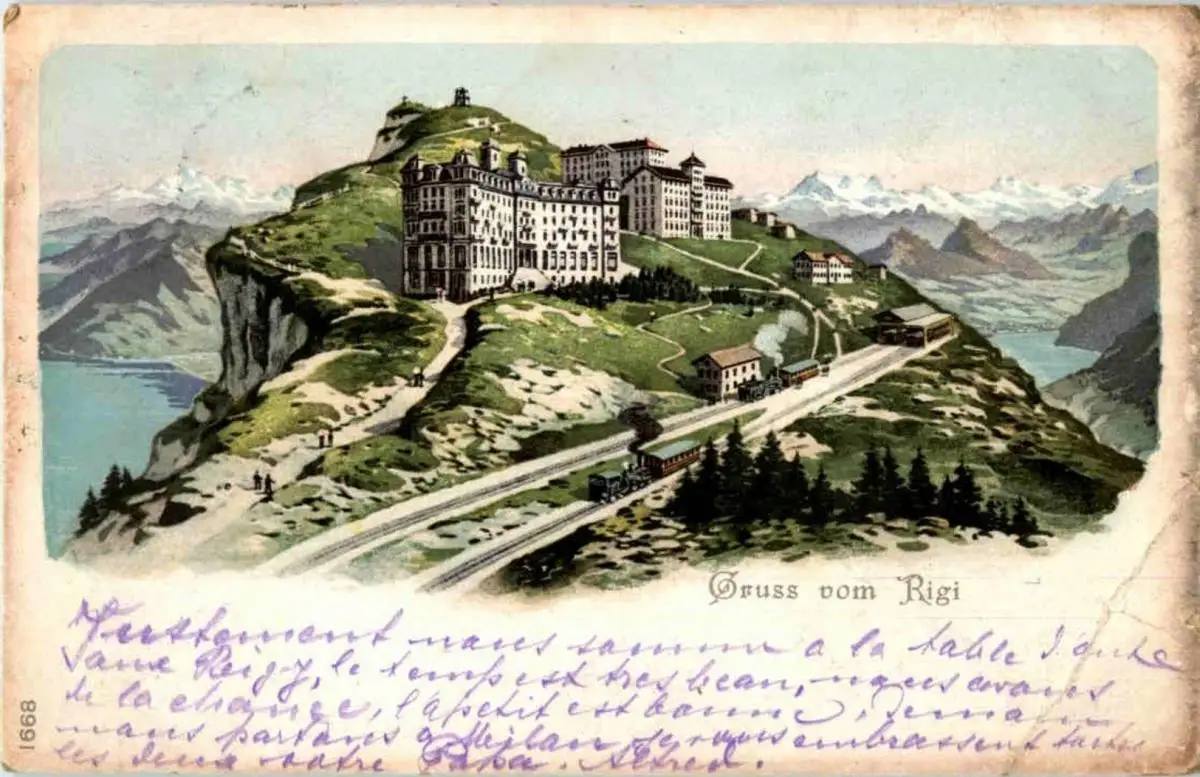 Gruss vom Rigi
1668
Justement nous somme a la table d'aute
sane Reigy, le temps est tres beau, nous avons
de la chance, l'apetit est bonne, demain
nous partons a Meilan je vous embrassent toutes
les deux votre Papa. Alfred.